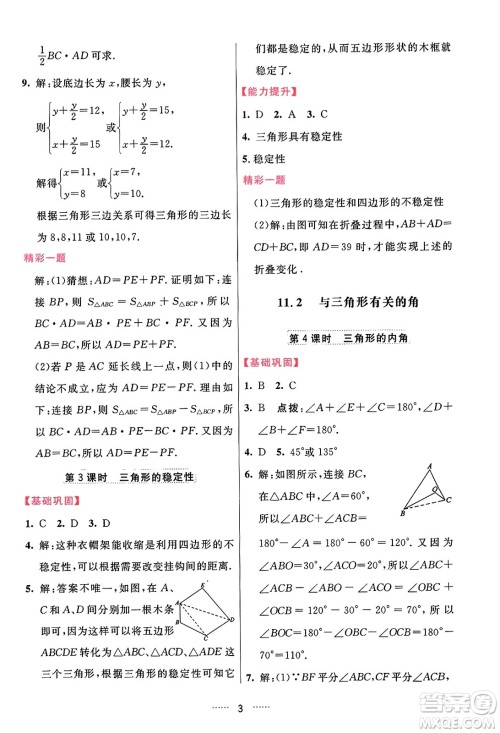 1/2 BC·AD可求.
9. 解：设底边长为 x，腰长为 y，
则 { y+y/2=12, x+y/2=15, 或 { y+y/2=15, x+y/2=12.
解得 { x=11, y=8 或 { x=7, y=10.
根据三角形三边关系可得三角形的三边长
为 8,8,11 或 10,10,7.
精彩一题
解：(1)猜想：AD=PE+PF. 证明：连
接 AP，如图①，因为 S△ABC=S△ABP+S△BCP，所以
BC·AD=BC·PF+AC·PE. 又因为 AC=
BC，所以 AD=PE+PF.
(2)若 P 是 AC 延长线上一点，则(1)的结
论不成立，应为 AD=PE-PF. 证明：如
图②，因为 S△ABC=S△ABP-S△BCP，所以
BC·AD=AC·PE-BC·PF. 又因为
AC=BC，所以 AD=PE-PF.
第3课时 三角形的稳定性
【基础巩固】
1. C 2. D 3. D
4. 解：这种衣帽架能收缩是利用四边形的不稳
定性，可以根据需要改变挂钩间的距离.
5. 解：答案不唯一，如图，在
C 和 A、D 间分别加一根木条
即可，这样可以将五边形
ABCDE 转变成三个三角形，这
三个三角形的稳定性可以知它
们都是稳定的，从而五边形形状的木框就
稳定了.
【能力提升】
1. D 2. A 3. C
4. 三角形具有稳定性
5. 稳定性
精彩一题
(1)三角形的稳定性和四边形的不稳定性
(2)解：由图可知在折叠过程中，AB+AD=
CD+BC，所以当 AD=39 时，才能实现上述的
折叠变化.
11.2 与三角形有关的角
第4课时 三角形的内角
【基础巩固】
1. B 2. C
3. B 点拨：∠A+∠E=180°，∠B+∠F=
180°，∠C+∠D=180°.
4. D 5. 45°或135°
6. 解：如图所示，
在△ABC 中，∠BAC+
∠ABC+∠ACB=180°，
所以∠ABC+∠ACB=
180°-∠BAC=180°-∠A. 又因为
∠ABO=30°，∠ACO=30°，所以
∠OBC+∠OCB=120°-∠A. 又在
△OBC 中，∠BOC=180°-(∠OBC+
∠OCB)=180°-(120°-∠A)=60°+
∠A.
7. 解：(1)∵BF平分∠ABC，CF平分∠ACB，
3
答案圈